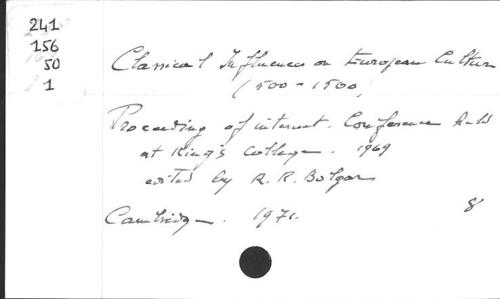 241
156
50
1
Classical Influences on European Culture
(500-1500)
Proceeding of internat. Conference held
at King's College. 1969
edited by R. R. Bolgar
Cambridge. 1971. 8